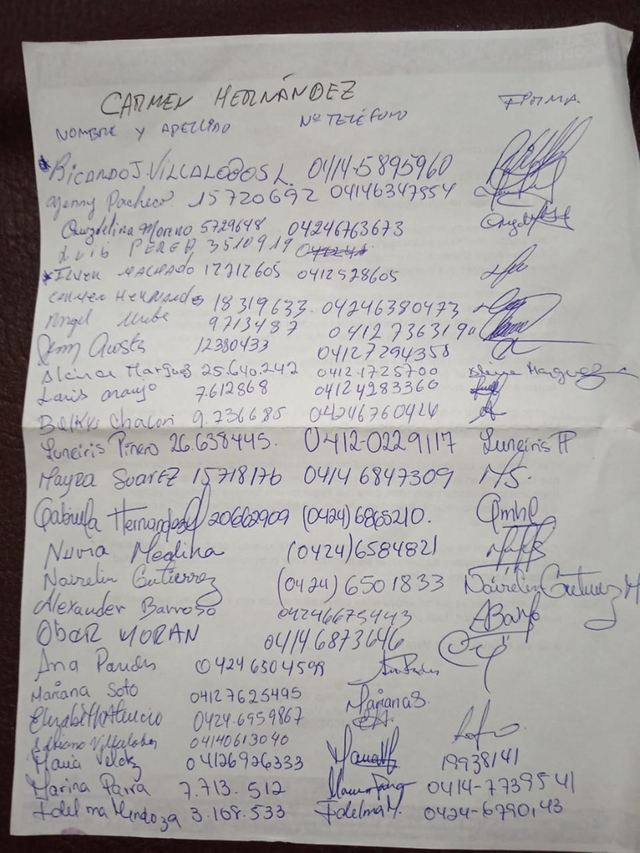 CARMEN HERNÁNDEZ
NOMBRE Y APELLIDO Nº TELÉFONO FIRMA
RICARDO J. VILLALOBOS L. 0414-5895960
Yenny Pacheco 15720692 04146347854
Moreno 5729648 04246763673
LUIS PEREA 3510919
MACHADO 17717605 0412528605
Carmen Hernandez 18319633 04246380473
Angel Uribe 9713487 0412736319
Acosta 12380433 04127294358
Marquez 25.640.242 04121725700 Marquez
Luis Araujo 7.612868 04124283360
Belkys Chacon 9.736685 04246760424
Luneiris Piñero 26.638445. 0412-0229117 Luneiris P
Mayra Suarez 15718176 0414 6847309 M.S.
Gabriela Hernandez 20662909 (0424)6865210.
Nuvia Medina (0424)6584821
Nairelin Gutierrez (0424)6501833 Nairelin Gutierrez M
Alexander Barroso 04246675443 ABarr
OBAR MORAN 04146873646
Ana Paredes 04246304599
Mariana Soto 04127625495 Mariana S.
Elizabeth Atencio 0424.6959867 E.A.
Adriano Villalobos 04140613040
Maria Veloz 04126926333 19938141
Marina Parra 7.713.512 0414-7739541
Fdelma Mendoza 3.108.533 Fdelma M. 0424-6790143